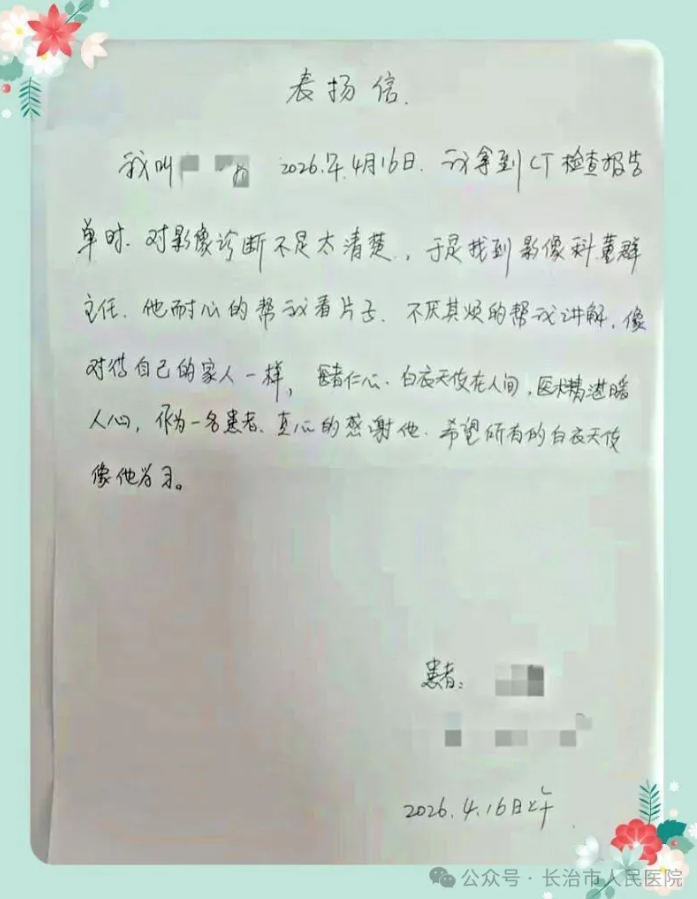 表扬信.
我叫 2026年4月16日.我拿到CT检查报告
单时.对影像诊断不是太清楚,于是找到影像科董群
主任.他耐心的帮我看片子.不厌其烦的帮我讲解,像
对待自己的家人一样,医者仁心.白衣天使在人间,医术精湛暖
人心,作为一名患者、真心的感谢他.希望所有的白衣天使
像他学习。
患者:
2026.4.16日上午
公众号·长治市人民医院